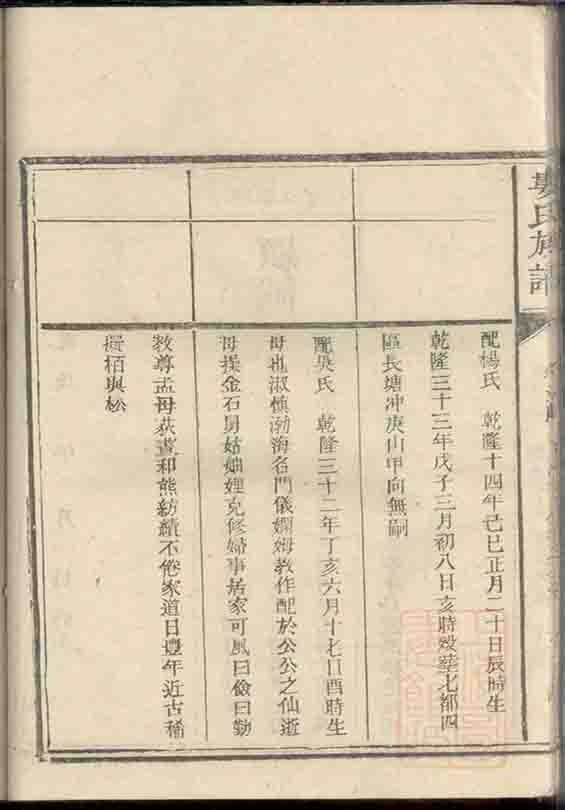 氏族譜
配楊氏 乾隆十四年己巳正月二十日辰時生
乾隆三十三年戊子三月初八日亥時歿塟七都四
區長塘冲庚山甲向無嗣
配吳氏 乾隆三十二年丁亥六月十七日酉時生
母也淑慎渤海名門儀嫻姆教作配於公公之仙逝
母操金石舅姑妯娌克修婦事居家可風曰儉曰勤
教尊孟母荻畫和熊紡績不倦家道日豊年近古稀
媲栢與松